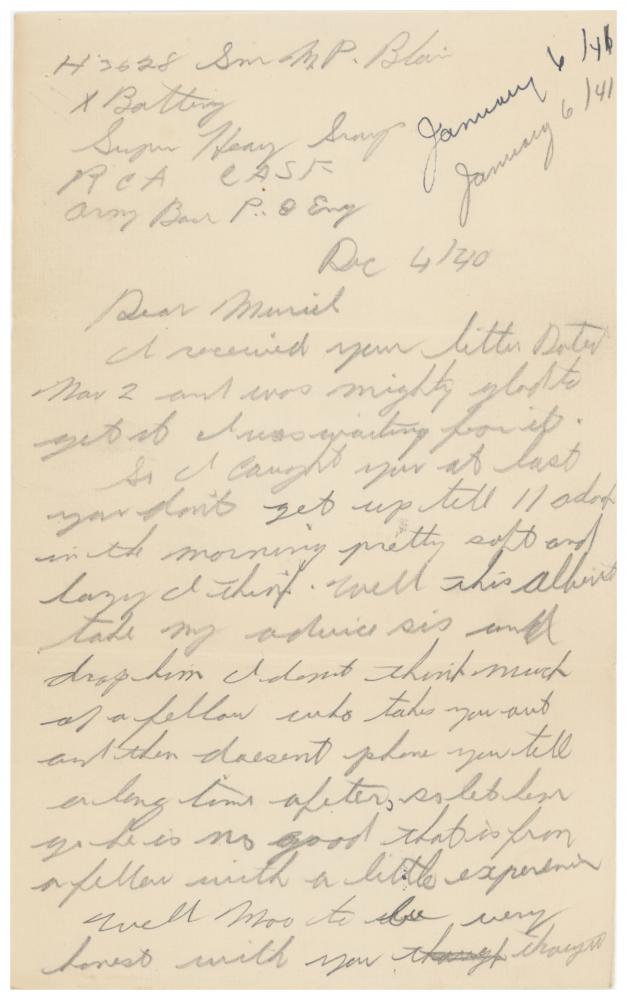 H 3628 Gnr M P. Blair
X Battery
Super Heavy Group
R C A CASF
Army Base P. O Eng
January 6/41
January 6/41
Dec 4/40
Dear Muriel
I received your letter Dated
Nov 2 and was mighty glad to
get it I was waiting for it.
So I caught you at last
you don't get up till 11 oclock
in the morning pretty soft and
lazy I think. Well this Albert
take my advice sis and
drop him I dont think much
of a fellow who takes you out
and then doesent phone you till
a long time after, so let him
go he is no good that is from
a fellow with a little experience
Well Moo to be very
honest with you though thought